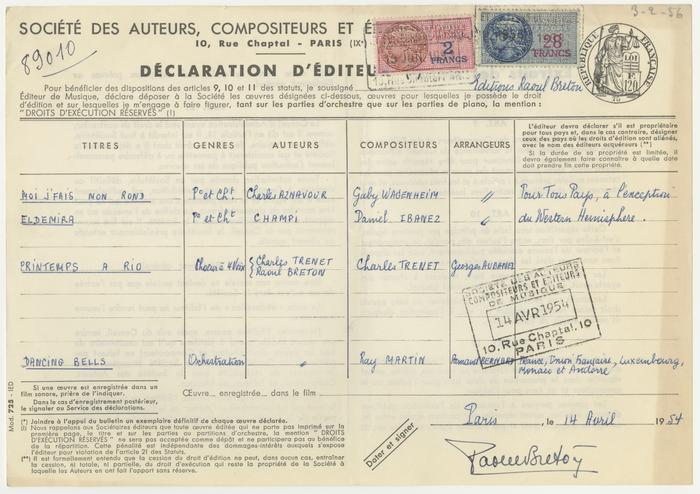 SOCIÉTÉ DES AUTEURS, COMPOSITEURS ET É
3-2-56
10, Rue Chaptal - PARIS (IX
89010
2
FRANCS
28
FRANCS
RÉPUBLIQUE FRANÇAISE
LOI
120
DÉCLARATION D'ÉDITEU
Pour bénéficier des dispositions des articles 9, 10 et 11 des statuts, je soussigné Editions Raoul Breton
Éditeur de Musique, déclare déposer à la Société les œuvres désignées ci-dessous, œuvres pour lesquelles je possède le droit
d'édition et sur lesquelles je m'engage à faire figurer, tant sur les parties d'orchestre que sur les parties de piano, la mention :
"DROITS D'EXÉCUTION RÉSERVÉS" (1)
TITRES GENRES AUTEURS COMPOSITEURS ARRANGEURS
L'éditeur devra déclarer s'il est propriétaire
pour tous pays et, dans le cas contraire, désigner
ceux des pays où les droits d'édition sont aliénés,
avec le nom des éditeurs acquéreurs (**)
Si la durée de sa propriété est limitée, il
devra également faire connaître à quelle date
doit prendre fin cette propriété.
MOI J'FAIS MON ROND Pº et Chᵗ. Charles AZNAVOUR Gaby WAGENHEIM " Pour Tous Pays, à l'exception
ELDEMIRA Pº et Chᵗ CHAMPI Daniel IBANEZ " du Western Hemisphere.
PRINTEMPS A RIO Chœur à 4 Voix { Charles TRENET Charles TRENET Georges AUBANEL
Raoul BRETON
SOCIÉTÉ DES AUTEURS
COMPOSITEURS ET ÉDITEURS
DE MUSIQUE
14 AVR 1954
10, Rue Chaptal, 10
PARIS
DANCING BELLS Orchestration " Ray MARTIN Armand BERNARD France, Union Française, Luxembourg,
Monaco et Andorre
Si une œuvre est enregistrée dans un
film sonore, prière de l'indiquer.
Dans le cas d'enregistrement postérieur,
le signaler au Service des déclarations.
Œuvre enregistrée dans le film
Mod. 725 - IED
(*) Joindre à l'appui du bulletin un exemplaire définitif de chaque œuvre déclarée.
(1) Nous rappelons aux Sociétaires éditeurs que toute œuvre éditée qui ne porte pas imprimé sur la
première page, le titre et sur les parties ou partitions d'orchestre, la mention "DROITS
D'EXÉCUTION RÉSERVÉS" ne sera pas acceptée comme dépôt et ne participera pas au bénéfice
de la répartition. Cette pénalité est indépendante des dommages-intérêts auxquels s'expose
l'éditeur pour violation de l'article 21 des Statuts.
(**) Il est formellement entendu que la cession du droit d'édition ne peut, dans aucun cas, entraîner
la cession, ni totale, ni partielle, du droit d'exécution qui reste la propriété de la Société à
laquelle les Auteurs en ont fait l'apport sans réserve.
Dater et signer
Paris, le 14 Avril 1954
Raoul Breton